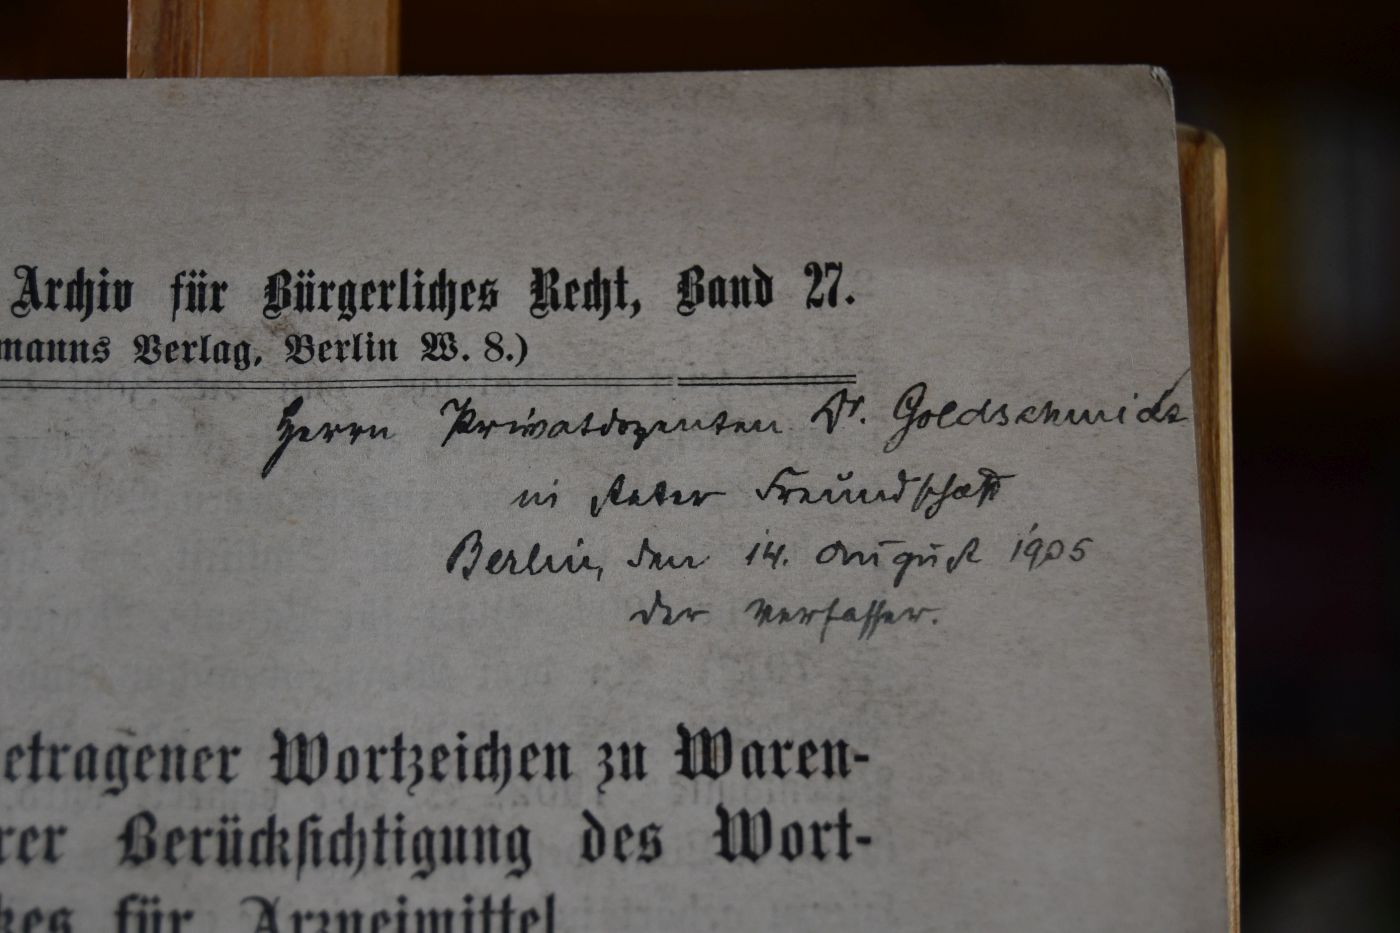 Archiv für Bürgerliches Recht, Band 27.
manns Verlag, Berlin W. 8.)
Herrn Privatdozenten Dr. Goldschmidt
in steter Freundschaft
Berlin, den 14. August 1905
der Verfasser.
etragener Wortzeichen zu Waren-
rer Berücksichtigung des Wort-
kes für Arzneimittel